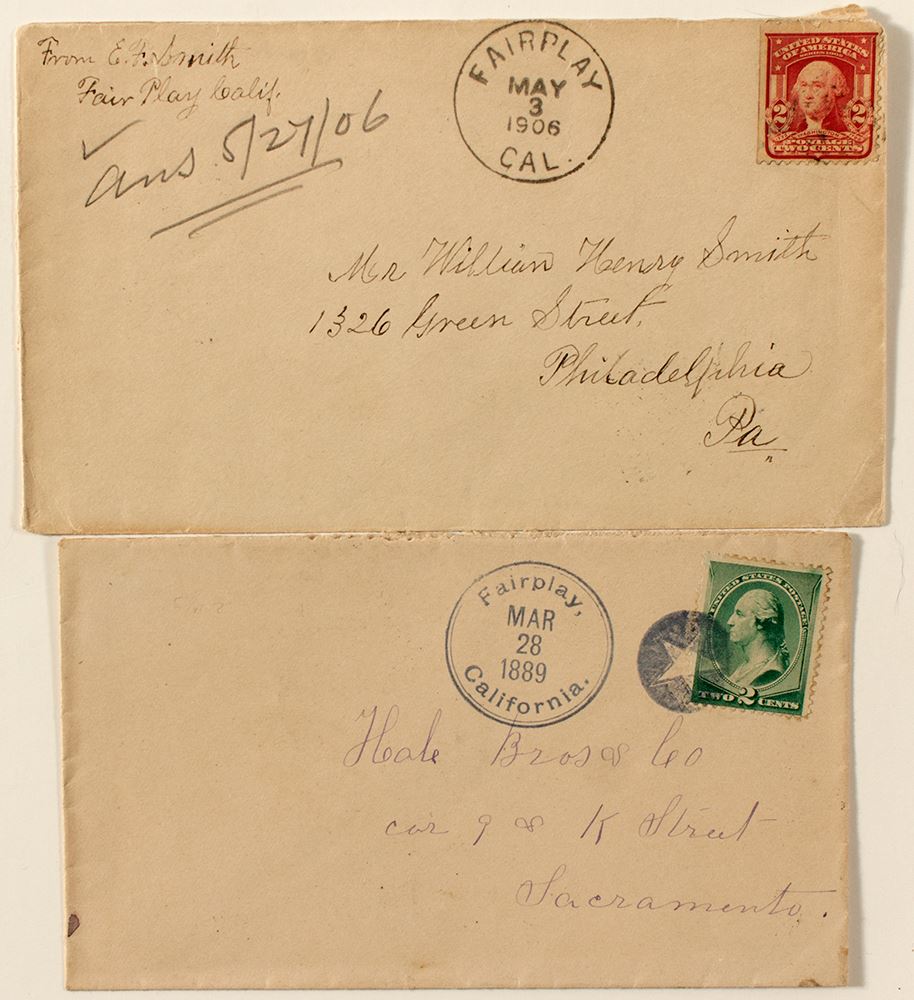 From E. F. Smith
Fair Play Calif.
ans 5/27/06
FAIRPLAY
MAY
3
1906
CAL.
UNITED STATES
OF AMERICA
2 2
POSTAGE
TWO CENTS
Mr William Henry Smith
1326 Green Street,
Philadelphia
Pa
Fairplay,
MAR
28
1889
California.
UNITED STATES POSTAGE
TWO 2 CENTS
Hale Bros & Co
cor 9 & K Street
Sacramento.